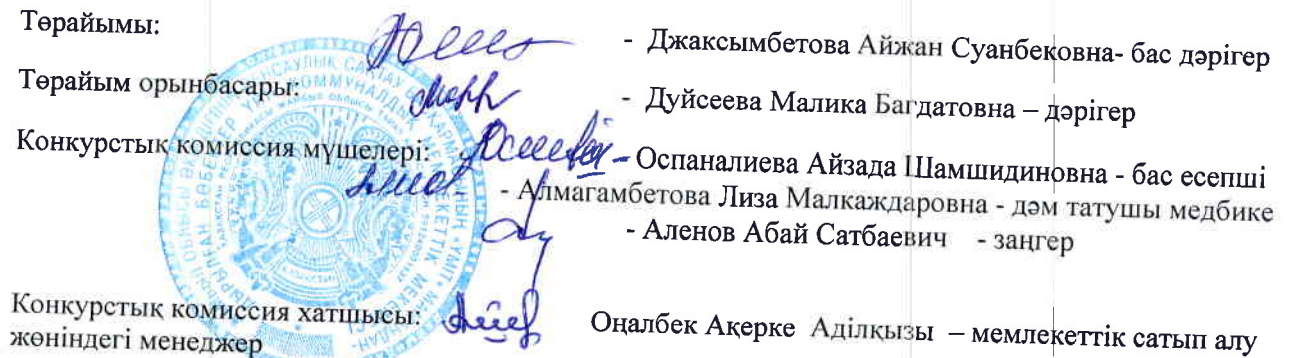 Төрайымы: - Джаксымбетова Айжан Суанбековна- бас дәрігер
Төрайым орынбасары: - Дуйсеева Малика Багдатовна – дәрігер
Конкурстық комиссия мүшелері: - Оспаналиева Айзада Шамшидиновна - бас есепші
- Алмагамбетова Лиза Малкаждаровна - дәм татушы медбике
- Аленов Абай Сатбаевич - заңгер
Конкурстық комиссия хатшысы: Оңалбек Ақерке Аділқызы – мемлекеттік сатып алу
жөніндегі менеджер